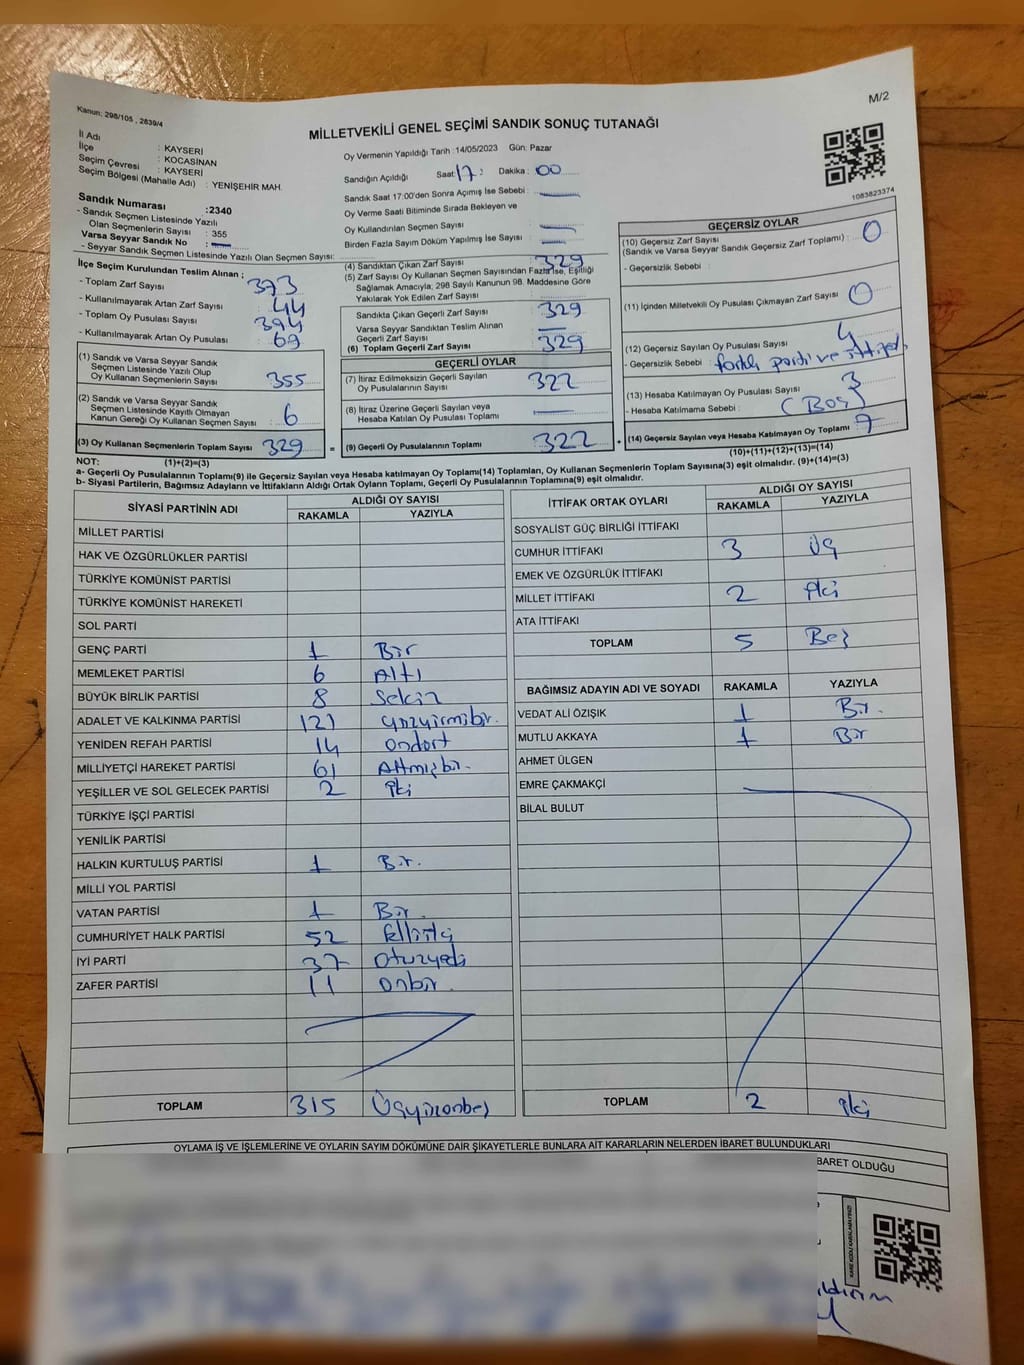 Kanun: 298/105 , 2839/4
M/2
MİLLETVEKİLİ GENEL SEÇİMİ SANDIK SONUÇ TUTANAĞI
İl Adı : KAYSERİ
İlçe : KOCASİNAN
Seçim Çevresi : KAYSERİ
Seçim Bölgesi (Mahalle Adı) : YENİŞEHİR MAH.
Oy Vermenin Yapıldığı Tarih :14/05/2023 Gün: Pazar
Sandığın Açıldığı Saat: 17: Dakika: 00
Sandık Saat 17:00'den Sonra Açımış İse Sebebi :
Oy Verme Saati Bitiminde Sırada Bekleyen ve
Oy Kullandırılan Seçmen Sayısı :
Birden Fazla Sayım Döküm Yapılmış İse Sayısı :
1083823374
Sandık Numarası :2340
- Sandık Seçmen Listesinde Yazılı
Olan Seçmenlerin Sayısı : 355
Varsa Seyyar Sandık No :
- Seyyar Sandık Seçmen Listesinde Yazılı Olan Seçmen Sayısı:
İlçe Seçim Kurulundan Teslim Alınan ;
- Toplam Zarf Sayısı 373
- Kullanılmayarak Artan Zarf Sayısı 44
- Toplam Oy Pusulası Sayısı 394
- Kullanılmayarak Artan Oy Pusulası 69
(1) Sandık ve Varsa Seyyar Sandık
Seçmen Listesinde Yazılı Olup
Oy Kullanan Seçmenlerin Sayısı 355
(2) Sandık ve Varsa Seyyar Sandık
Seçmen Listesinde Kayıtlı Olmayan
Kanun Gereği Oy Kullanan Seçmen Sayısı 6
(3) Oy Kullanan Seçmenlerin Toplam Sayısı 329
(4) Sandıktan Çıkan Zarf Sayısı 329
(5) Zarf Sayısı Oy Kullanan Seçmen Sayısından Fazla İse, Eşitliği
Sağlamak Amacıyla; 298 Sayılı Kanunun 98. Maddesine Göre
Yakılarak Yok Edilen Zarf Sayısı :
Sandıkta Çıkan Geçerli Zarf Sayısı : 329
Varsa Seyyar Sandıktan Teslim Alınan
Geçerli Zarf Sayısı :
(6) Toplam Geçerli Zarf Sayısı : 329
GEÇERLİ OYLAR
(7) İtiraz Edilmeksizin Geçerli Sayılan
Oy Pusulalarının Sayısı : 322
(8) İtiraz Üzerine Geçerli Sayılan veya
Hesaba Katılan Oy Pusulası Toplamı :
= (9) Geçerli Oy Pusulalarının Toplamı 322
GEÇERSİZ OYLAR
(10) Geçersiz Zarf Sayısı
(Sandık ve Varsa Seyyar Sandık Geçersiz Zarf Toplamı) : 0
- Geçersizlik Sebebi :
(11) İçinden Milletvekili Oy Pusulası Çıkmayan Zarf Sayısı 0
(12) Geçersiz Sayılan Oy Pusulası Sayısı 4
- Geçersizlik Sebebi : farklı parti ve ittifak
(13) Hesaba Katılmayan Oy Pusulası Sayısı 3
- Hesaba Katılmama Sebebi : (Boş)
+ (14) Geçersiz Sayılan veya Hesaba Katılmayan Oy Toplamı 7
NOT: (1)+(2)=(3)
(10)+(11)+(12)+(13)=(14)
a- Geçerli Oy Pusulalarının Toplamı(9) ile Geçersiz Sayılan veya Hesaba katılmayan Oy Toplamı(14) Toplamları, Oy Kullanan Seçmenlerin Toplam Sayısına(3) eşit olmalıdır. (9)+(14)=(3)
b- Siyasi Partilerin, Bağımsız Adayların ve İttifakların Aldığı Ortak Oyların Toplamı, Geçerli Oy Pusulalarının Toplamına(9) eşit olmalıdır.
SİYASİ PARTİNİN ADI ALDIĞI OY SAYISI
RAKAMLA YAZIYLA
MİLLET PARTİSİ
HAK VE ÖZGÜRLÜKLER PARTİSİ
TÜRKİYE KOMÜNİST PARTİSİ
TÜRKİYE KOMÜNİST HAREKETİ
SOL PARTİ
GENÇ PARTİ 1 Bir
MEMLEKET PARTİSİ 6 Altı
BÜYÜK BİRLİK PARTİSİ 8 Sekiz
ADALET VE KALKINMA PARTİSİ 121 yüzyirmibir.
YENİDEN REFAH PARTİSİ 14 ondört
MİLLİYETÇİ HAREKET PARTİSİ 61 Altmışbir.
YEŞİLLER VE SOL GELECEK PARTİSİ 2 iki
TÜRKİYE İŞÇİ PARTİSİ
YENİLİK PARTİSİ
HALKIN KURTULUŞ PARTİSİ 1 Bir.
MİLLİ YOL PARTİSİ
VATAN PARTİSİ 1 Bir.
CUMHURİYET HALK PARTİSİ 52 Elliiki
İYİ PARTİ 37 Otuzyedi
ZAFER PARTİSİ 11 Onbir.
TOPLAM 315 Üçyüzonbeş
İTTİFAK ORTAK OYLARI ALDIĞI OY SAYISI
RAKAMLA YAZIYLA
SOSYALİST GÜÇ BİRLİĞİ İTTİFAKI
CUMHUR İTTİFAKI 3 Üç
EMEK VE ÖZGÜRLÜK İTTİFAKI
MİLLET İTTİFAKI 2 iki
ATA İTTİFAKI
TOPLAM 5 Beş
BAĞIMSIZ ADAYIN ADI VE SOYADI RAKAMLA YAZIYLA
VEDAT ALİ ÖZIŞIK 1 Bir.
MUTLU AKKAYA 1 Bir
AHMET ÜLGEN
EMRE ÇAKMAKÇİ
BİLAL BULUT
TOPLAM 2 iki
OYLAMA İŞ VE İŞLEMLERİNE VE OYLARIN SAYIM DÖKÜMÜNE DAİR ŞİKAYETLERLE BUNLARA AİT KARARLARIN NELERDEN İBARET BULUNDUKLARI
BARET OLDUĞU
ıldırım